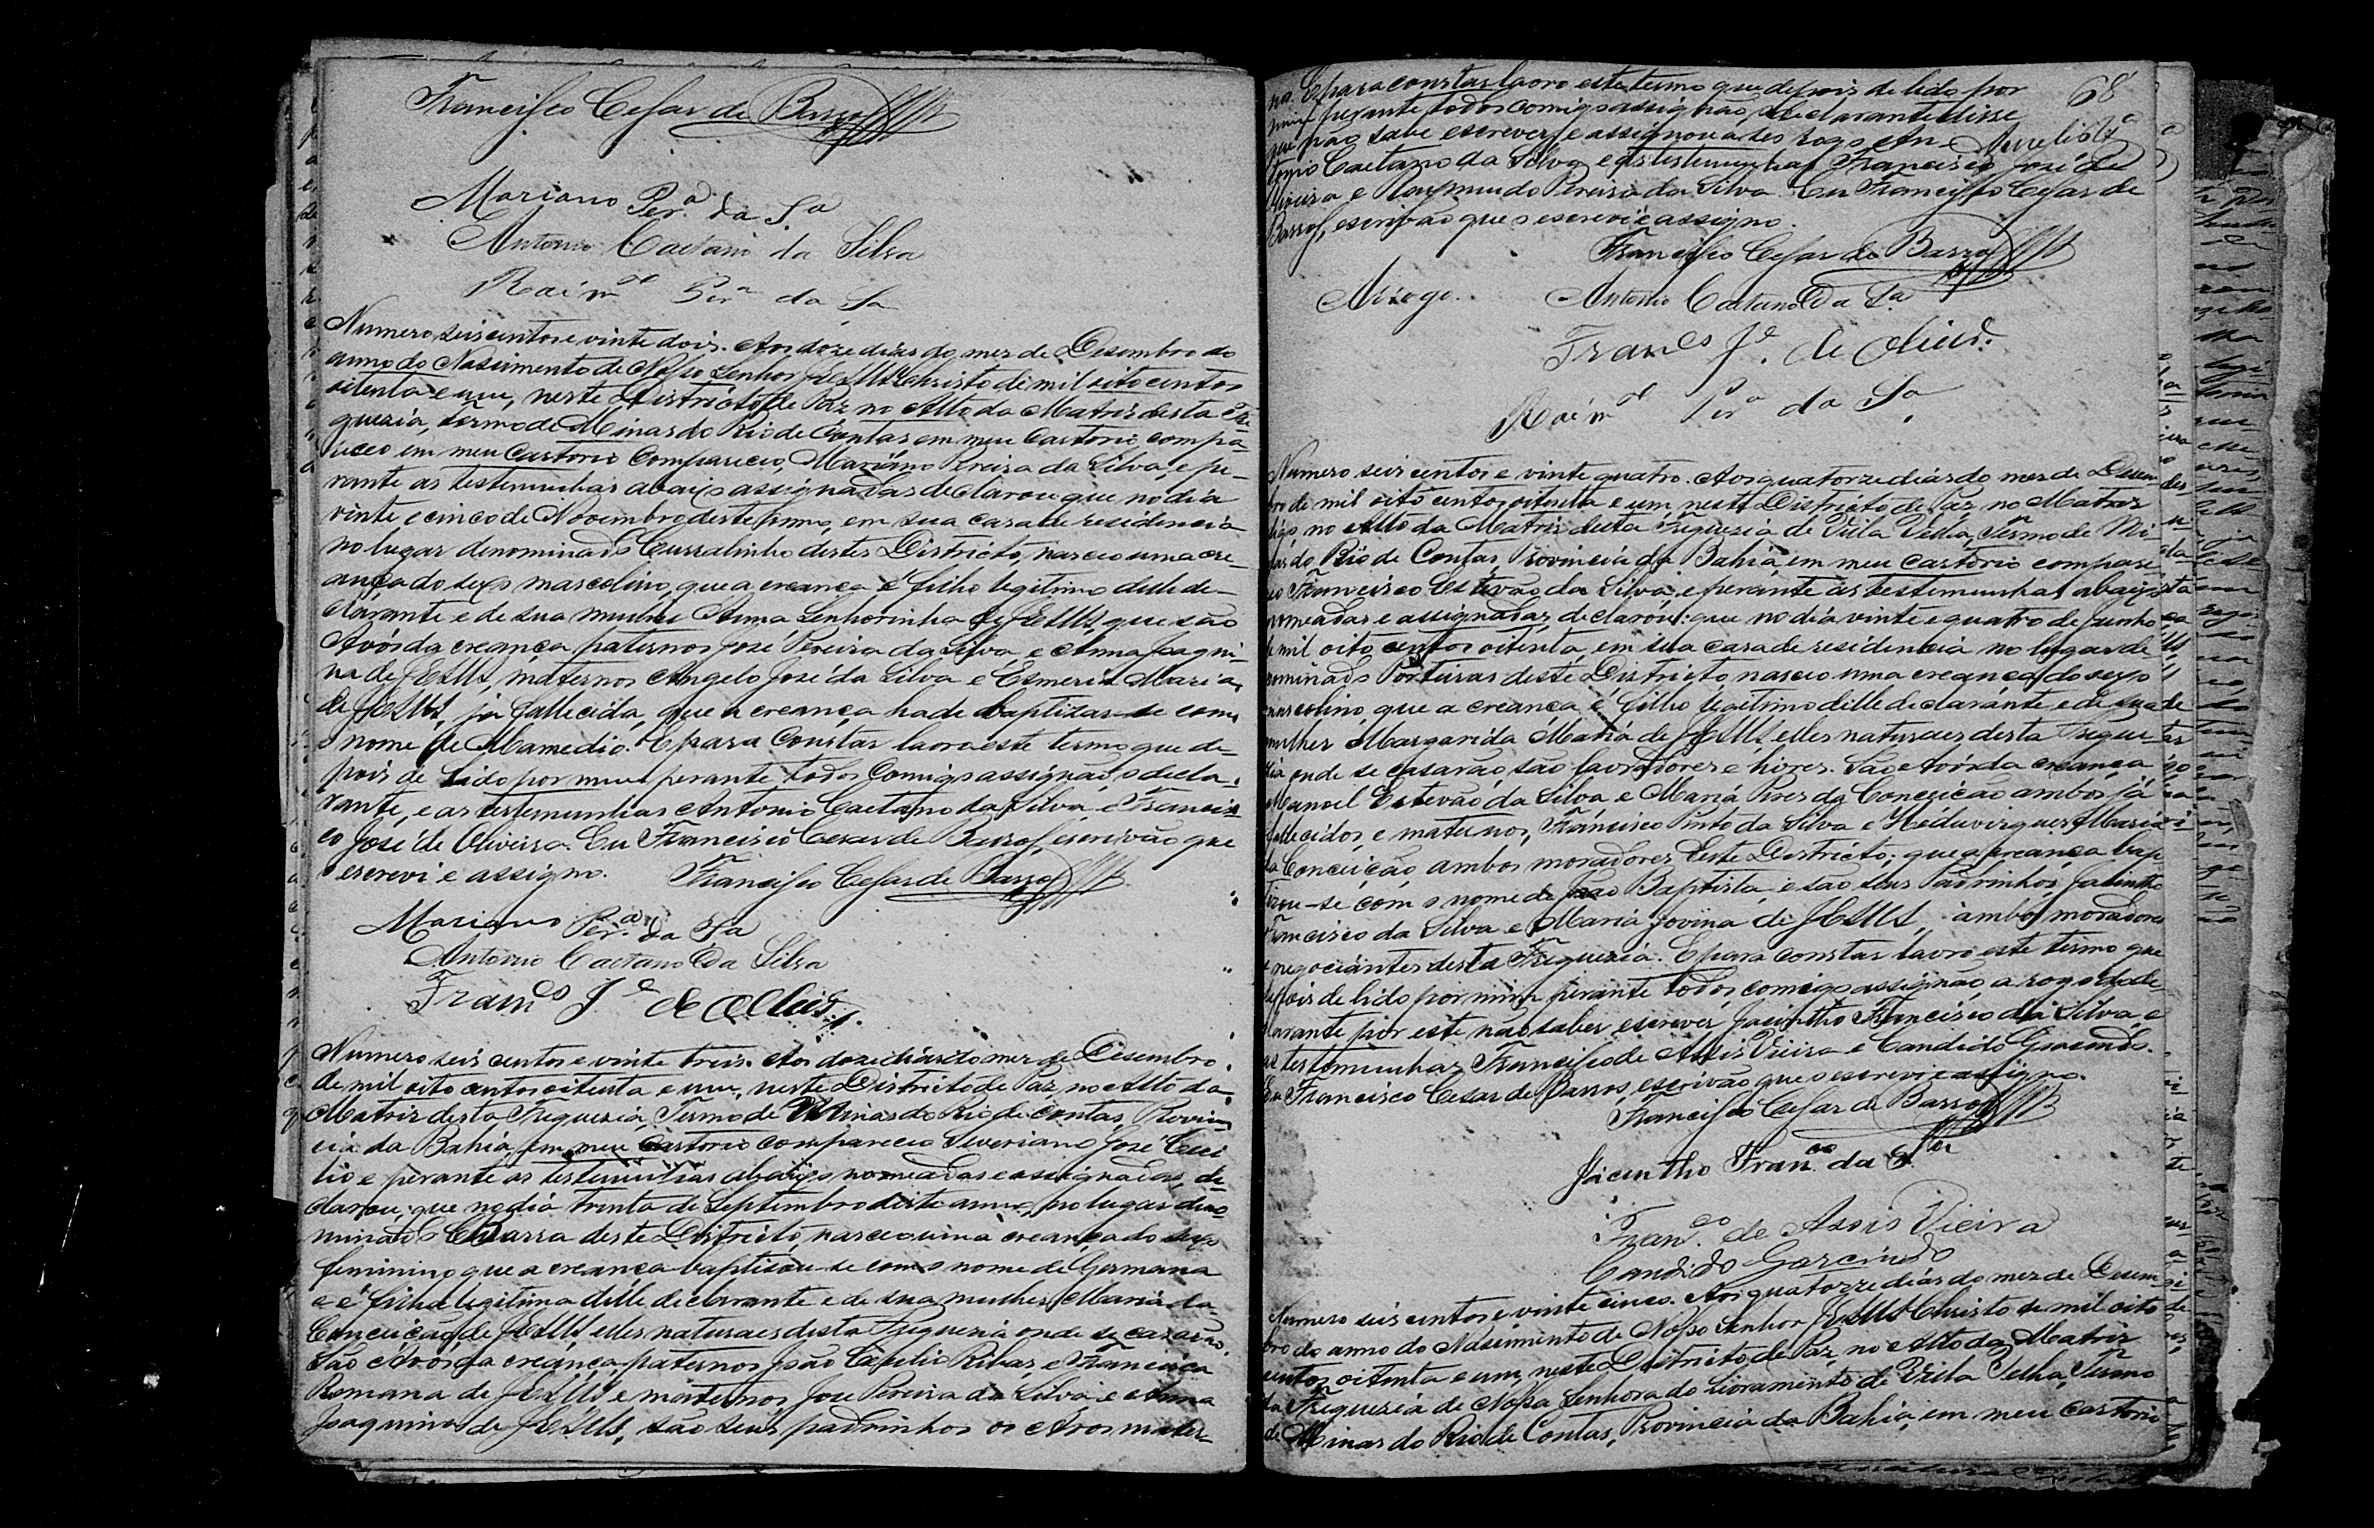 Francisco Cesar de Barros
Mariano Per.ª da S.ª
Antonio Caetano da Silva
Raim.do Per.ª da S.ª
Numero seis centos e vinte dois. Aos doze dias do mes de Desembro do
anno do Nascimento de Nosso Senhor JESUS Christo de mil oito centos
oitenta e um, neste Districto de Paz no Alto da Matriz desta Fre-
guesia, termo de Minas do Rio de Contas em meu Cartorio, compa-
receo em meu Cartorio Compareceo, Mariano Pereira da Silva, e pe-
rante as testemunhas abaixo assignadas declarou que no dia
vinte e cinco de Novembro deste anno, em sua casa de residencia
no lugar denominado Curralinho destes Districto, nasceo uma cre-
ança do sexo mascolino, que a creança é filho legitimo delle de-
clarante e de sua mulher Anna Senhorinha de JESUS, que são
Avós da creança, paternos José Pereira da Silva, e Anna Joaqui-
na de JESUS, maternos Angelo José da Silva e Esmeria Maria
de JESUS, já fallecida, que a creança hade baptizar-se com
o nome de Mamedio. E para constar lavro este termo que de-
pois de lido por mim perante todos comigo assignão, o decla-
rante, e as testemunhas Antonio Caetano da Silva, e Francis-
co José de Oliveira. Eu Francisco Cesar de Barros, escrivão que
o escrevi e assigno. Francisco Cesar de Barros
Mariano Per.ª da S.ª
Antonio Caetano da Silva
Fran.co J.e de Oliv.ª
Numero seis centos e vinte treis. Aos doze dias do mez de Desembro
de mil oito centos oitenta e um, neste Districto de Paz, no Alto da
Matriz desta Freguesia, Termo de Minas do Rio de Contas, Provin
cia da Bahia, em meu Cartorio compareceo Severiano José Ceci
lio e perante as testemunhas abaixo nomeadas e assignadas, de-
clarou; que no dia trinta de Septembro deste anno, no lugar deno
minado Barra deste Districto, nasceo uma creança do sexo
feminino que a creança baptisou-se com o nome de Germana
e é filha legitima delle declarante e de sua mulher Maria da
Conceição de JESUS, elles naturaes desta Freguesia onde se casarão.
São Avós da creança, paternos João Cecilio Ribas, e Francisca
Romana de JESUS e maternos José Pereira da Silva e Anna
Joaquina de JESUS, são seus padrinhos os Avos mater-
68
nos. E para constar lavro este termo que depois de lido por
mim perante todos comigo assignão, declarante disse
que não sabe escrever, e assignou a seo rogo An-
tonio Caetano da Silva e as testemunhas Francisco José de
Oliveira e Raymundo Pereira da Silva. Eu Francisco Cesar de
Barros, escrivão que o escrevi e assigno.
Francisco Cesar de Barros
Arrogo. Antonio Caetano da S.ª
Fran.co J.e de Oliv.ª
Raim.do Per.ª da S.ª
Numero seis centos e vinte quatro. Aos quatorze dias do mes de Desem
bro de mil oito centos oitenta e um, neste Districto de Paz, no Matriz
digo no Alto da Matriz desta Freguesia de Villa Velha, Termo de Mi-
nas do Rio de Contas, Provincia da Bahia, em meu Cartorio compare
ceo Francisco Estevão da Silva, e perante as testemunhas abaixo
nomeadas e assignadas, declarou: que no dia vinte e quatro de Junho
de mil oito centos oitenta, em sua casa de residencia no lugar de-
nominado Porteiras deste Districto, nasceo uma creança do sexo
mascolino, que a creança é filho legitimo delle declarante e de sua
mulher Margarida Maria de JESUS, elles naturaes desta Fregue-
sia onde se casarão, são lavradores e livres. São Avós da creança
Manoel Estevão da Silva e Maria Pires da Conceição ambos já
fallecidos, e maternos, Francisco Pinto da Silva e Heduvirgues Maria
da Conceição, ambos moradores deste Districto; que a creança bap
tizou-se com o nome de João Baptista, e são seus Padrinhos, Jacintho
Francisco da Silva e Maria Jovina de JESUS, ambos moradores
e negociantes desta Freguesia. E para constar lavro este termo que
depois de lido por mim perante todos comigo assignão, a rogo do de-
clarante por este não saber escrever, Jacintho Francisco da Silva, e
as testemunhas Francisco de Assis Vieira e Candido Gracindo.
Eu Francisco Cesar de Barros, escrivão que o escrevi e assigno.
Francisco Cesar de Barros
Jacintho Fran.co da S.ª
Fran.co de Assis Vieira
Candido Garcindo
Numero seis centos e vinte cinco. Aos quatorze dias do mez de Desem
bro do anno do Nascimento de Nosso Senhor JESUS Christo de mil oito
centos oitenta e um, neste Districto de Paz, no Alto da Matriz
da Freguesia de Nossa Senhora do Livramento de Villa Velha, Termo
de Minas do Rio de Contas, Provincia da Bahia, em meu Cartorio